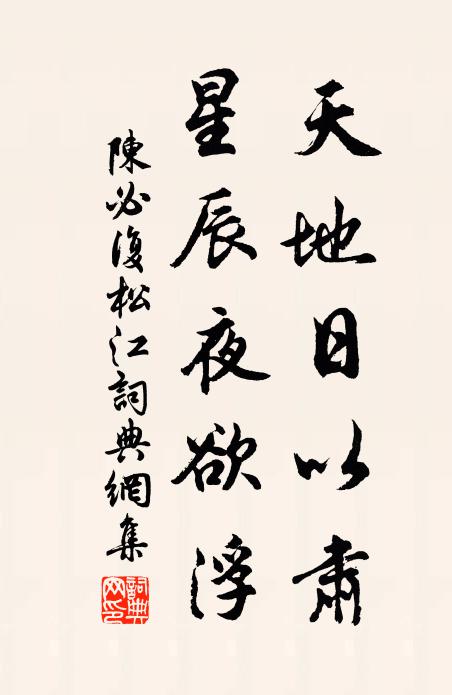 天地日以肅
星辰夜欲浮
陳必復松江詞典網集
詞典網印